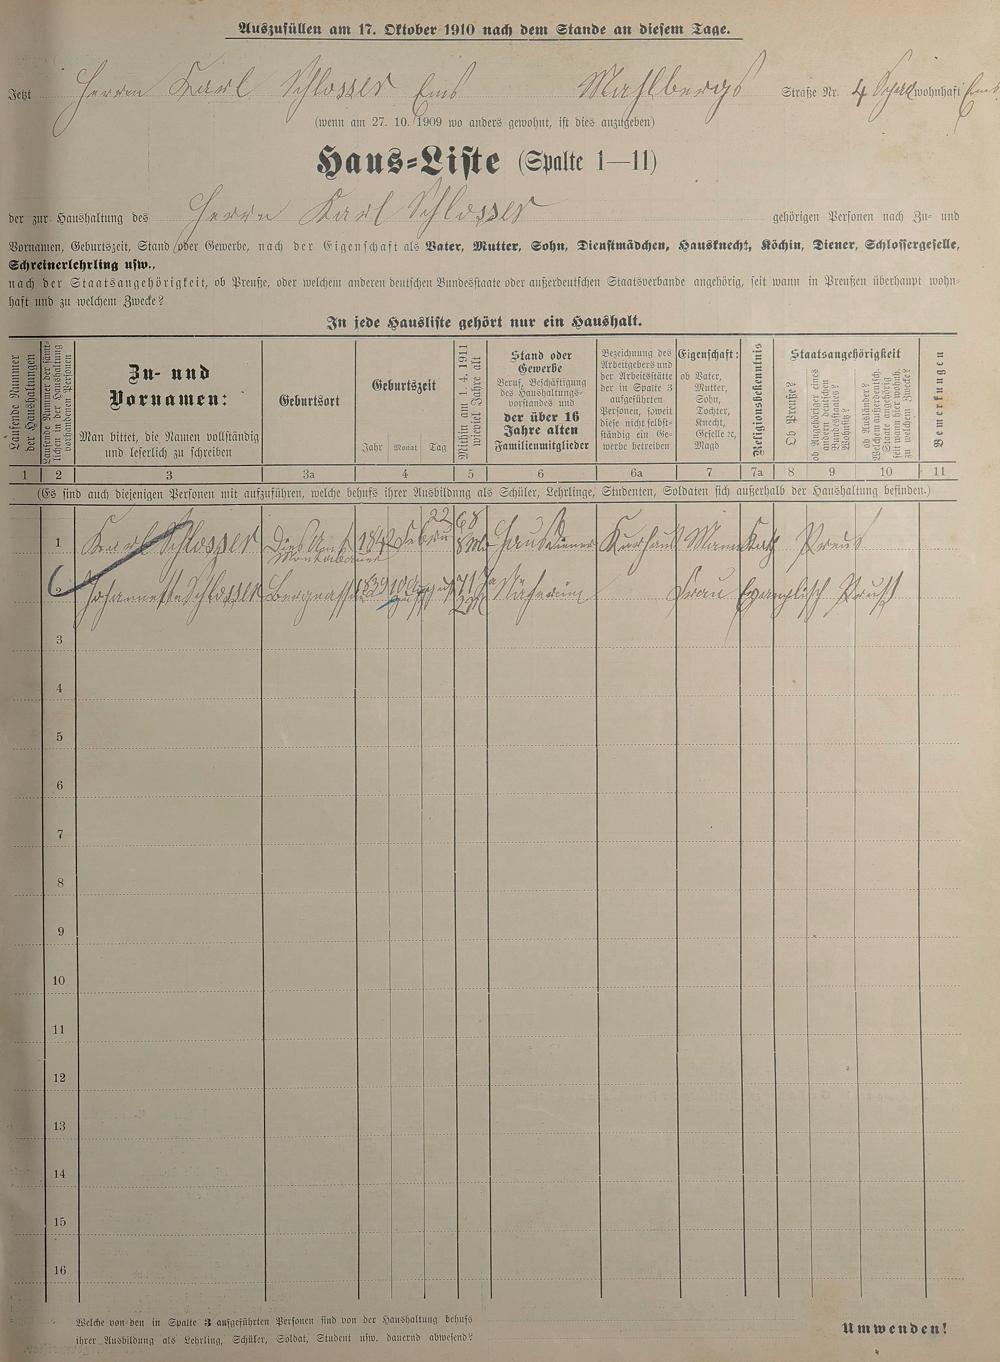 Auszufüllen am 17. Oktober 1910 nach dem Stande an diesem Tage.
Jetzt Herrn Karl Schlosser Ems Mahlbergs Straße Nr. 4 wohnhaft Ems
(wenn am 27. 10. 1909 wo anders gewohnt, ist dies anzugeben)
Haus-Liste (Spalte 1—11)
der zur Haushaltung des Herrn Karl Schlosser gehörigen Personen nach Zu- und
Vornamen, Geburtszeit, Stand oder Gewerbe, nach der Eigenschaft als Vater, Mutter, Sohn, Dienstmädchen, Hausknecht, Köchin, Diener, Schlossergeselle,
Schreinerlehrling usw.,
nach der Staatsangehörigkeit, ob Preuße, oder welchem anderen deutschen Bundesstaate oder außerdeutschen Staatsverbande angehörig, seit wann in Preußen überhaupt wohn-
haft und zu welchem Zwecke?
In jede Hausliste gehört nur ein Haushalt.
Laufende Nummer
der Haushaltungen
Laufende Nummer der sämt-
lichen in der Haushaltung
vorhandenen Personen
Zu- und
Vornamen:
Man bittet, die Namen vollständig
und leserlich zu schreiben
Geburtsort
Geburtszeit
Jahr Monat Tag
Mithin am 1. 4. 1911
wieviel Jahre alt
Stand oder
Gewerbe
Beruf, Beschäftigung
des Haushaltungs-
vorstandes und
der über 16
Jahre alten
Familienmitglieder
Bezeichnung des
Arbeitgebers und
der Arbeitsstätte
der in Spalte 3
aufgeführten
Personen, soweit
diese nicht selbst-
ständig ein Ge-
werbe betreiben
Eigenschaft:
ob Vater,
Mutter,
Sohn,
Tochter,
Knecht,
Geselle ꝛc,
Magd
Religionsbekenntnis
Staatsangehörigkeit
Ob Preuße?
ob Angehöriger eines
andern deutschen
Bundesstaates?
Wohnsitz?
ob Ausländer?
Welchem außerdeutsch.
Staate angehörig
seit wann hier wohnh.
zu welchem Zwecke?
Bemerkungen
1 2 3 3a 4 5 6 6a 7 7a 8 9 10 11
(Es sind auch diejenigen Personen mit aufzuführen, welche behufs ihrer Ausbildung als Schüler, Lehrlinge, Studenten, Soldaten sich außerhalb der Haushaltung befinden.)
1 Karl Schlosser Montabauer Febru 22 68 Hausdiener Kurhaus Mann Kath Preus
2 Johannette Schlosser 1839 August 71 Näherinn Frau Evanglisch Preus
3
4
5
6
7
8
9
10
11
12
13
14
15
16
Welche von den in Spalte 3 aufgeführten Personen sind von der Haushaltung behufs
ihrer Ausbildung als Lehrling, Schüler, Soldat, Student usw. dauernd abwesend?
Umwenden!